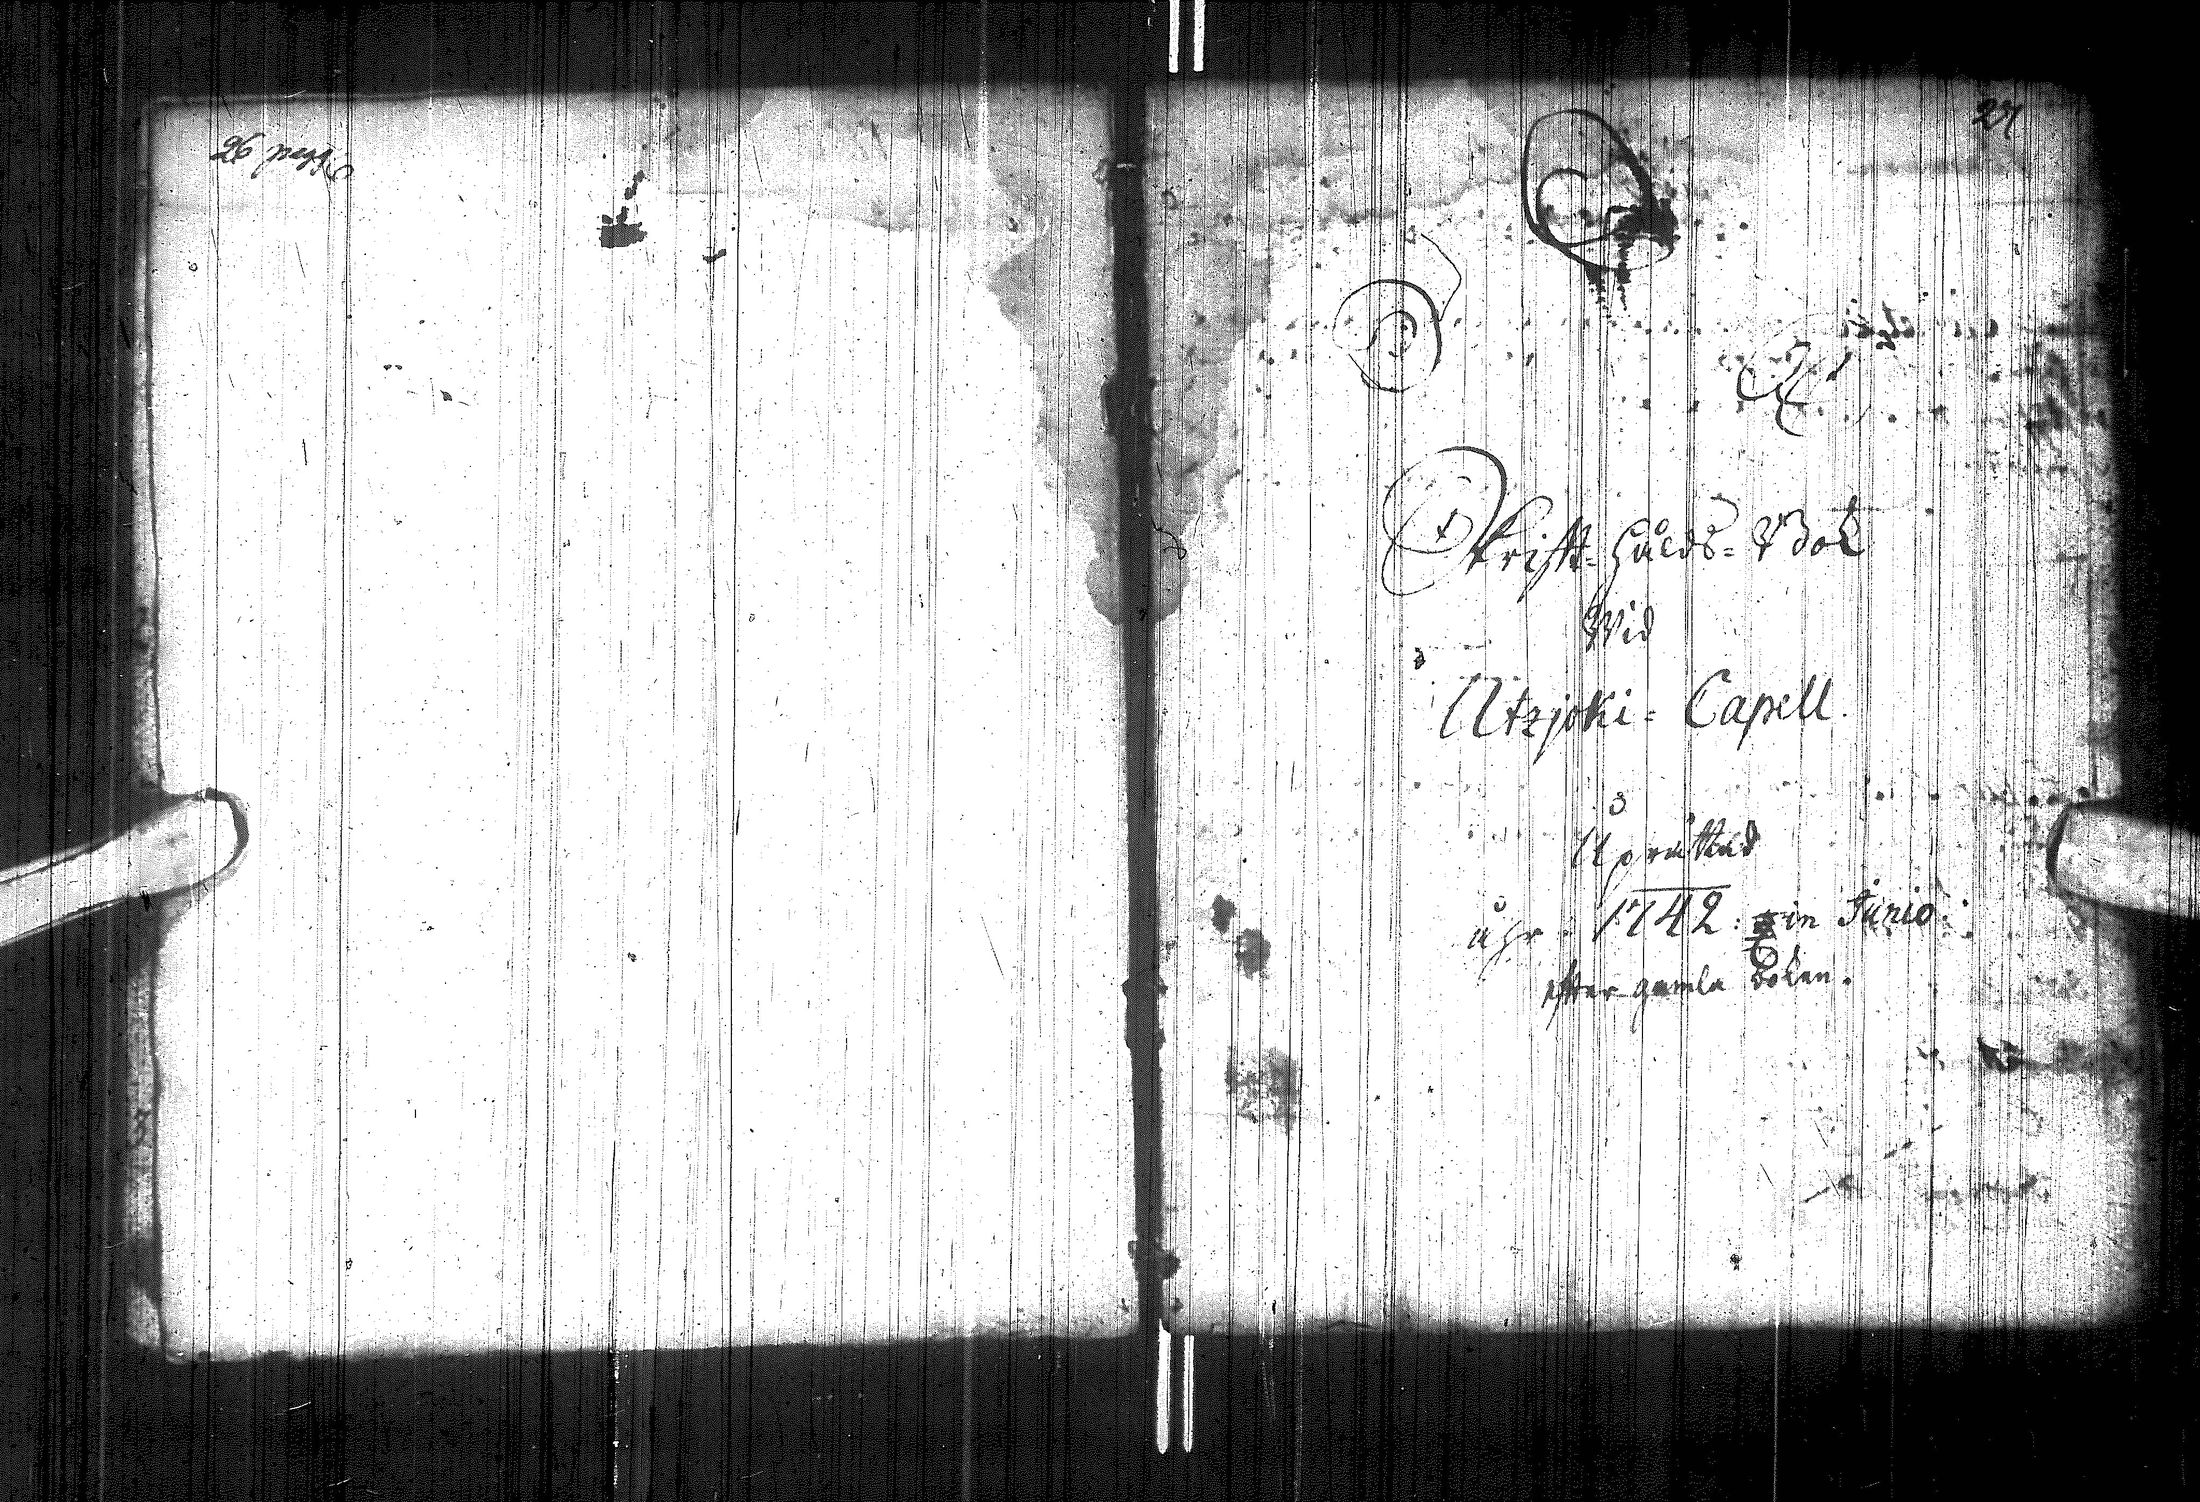 26
27
Skrifft-Håldz-Bok
Wid
Utzjoki-Capell.
Uprättad
åhr 1742: in Junio:
efter gamla Boken.